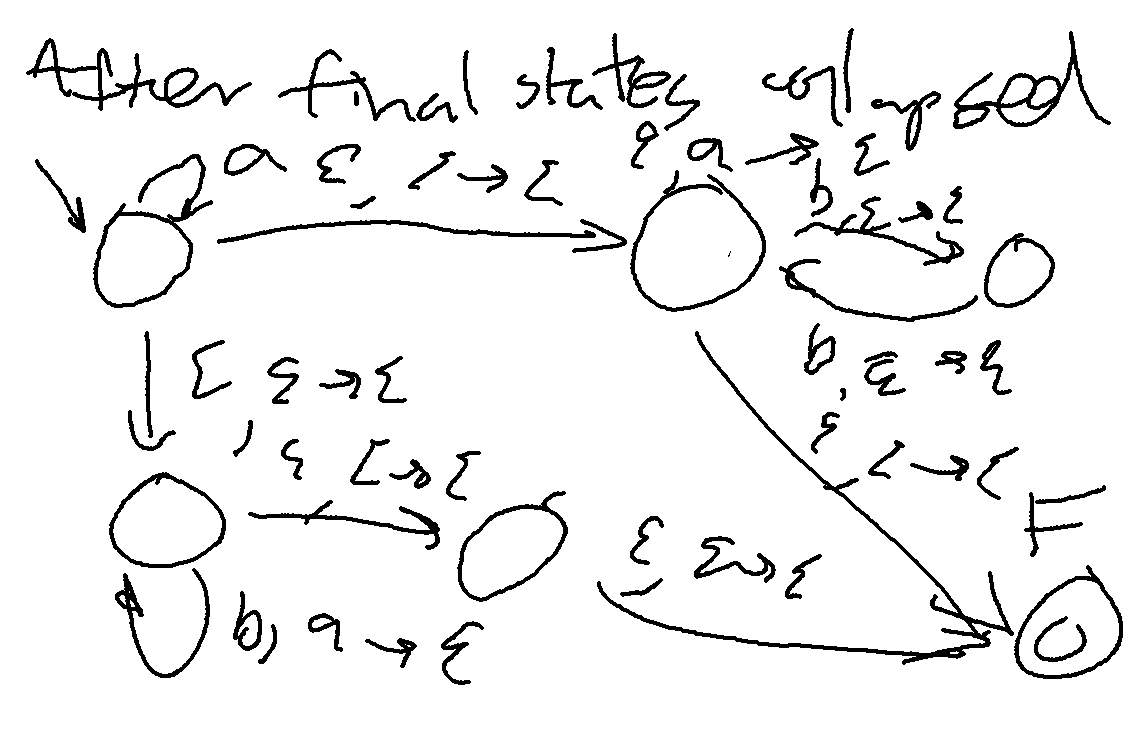 After final states collapsed
a ε, Z → ε
ε, a → ε
b, ε → ε
ε, ε → ε
b, ε → ε
ε, Z → ε
ε, Z → ε
F
ε, ε → ε
b, a → ε